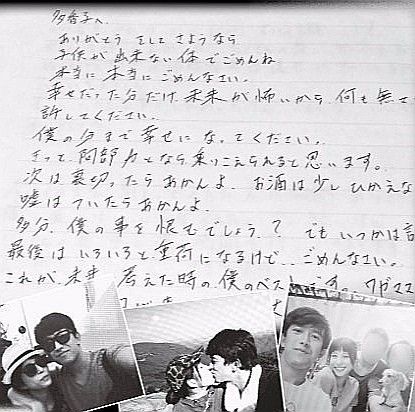 多香子へ
ありがとう そして さようなら
子供が出来ない体でごめんね
本当に本当にごめんなさい。
幸せだった分だけ、未来が怖いから 何も無
許してください。
僕の分まで幸せになってください。
きっと、阿部力となら乗りこえられると思います。
次は裏切ったらあかんよ、お酒は少しひかえな
嘘はついたらあかんよ。
多分、僕の事を恨むでしょう?でもいつかは
最後はいろいろと重荷になるけど…ごめんなさい。
これが、未来 考えた時の僕のベスト です。